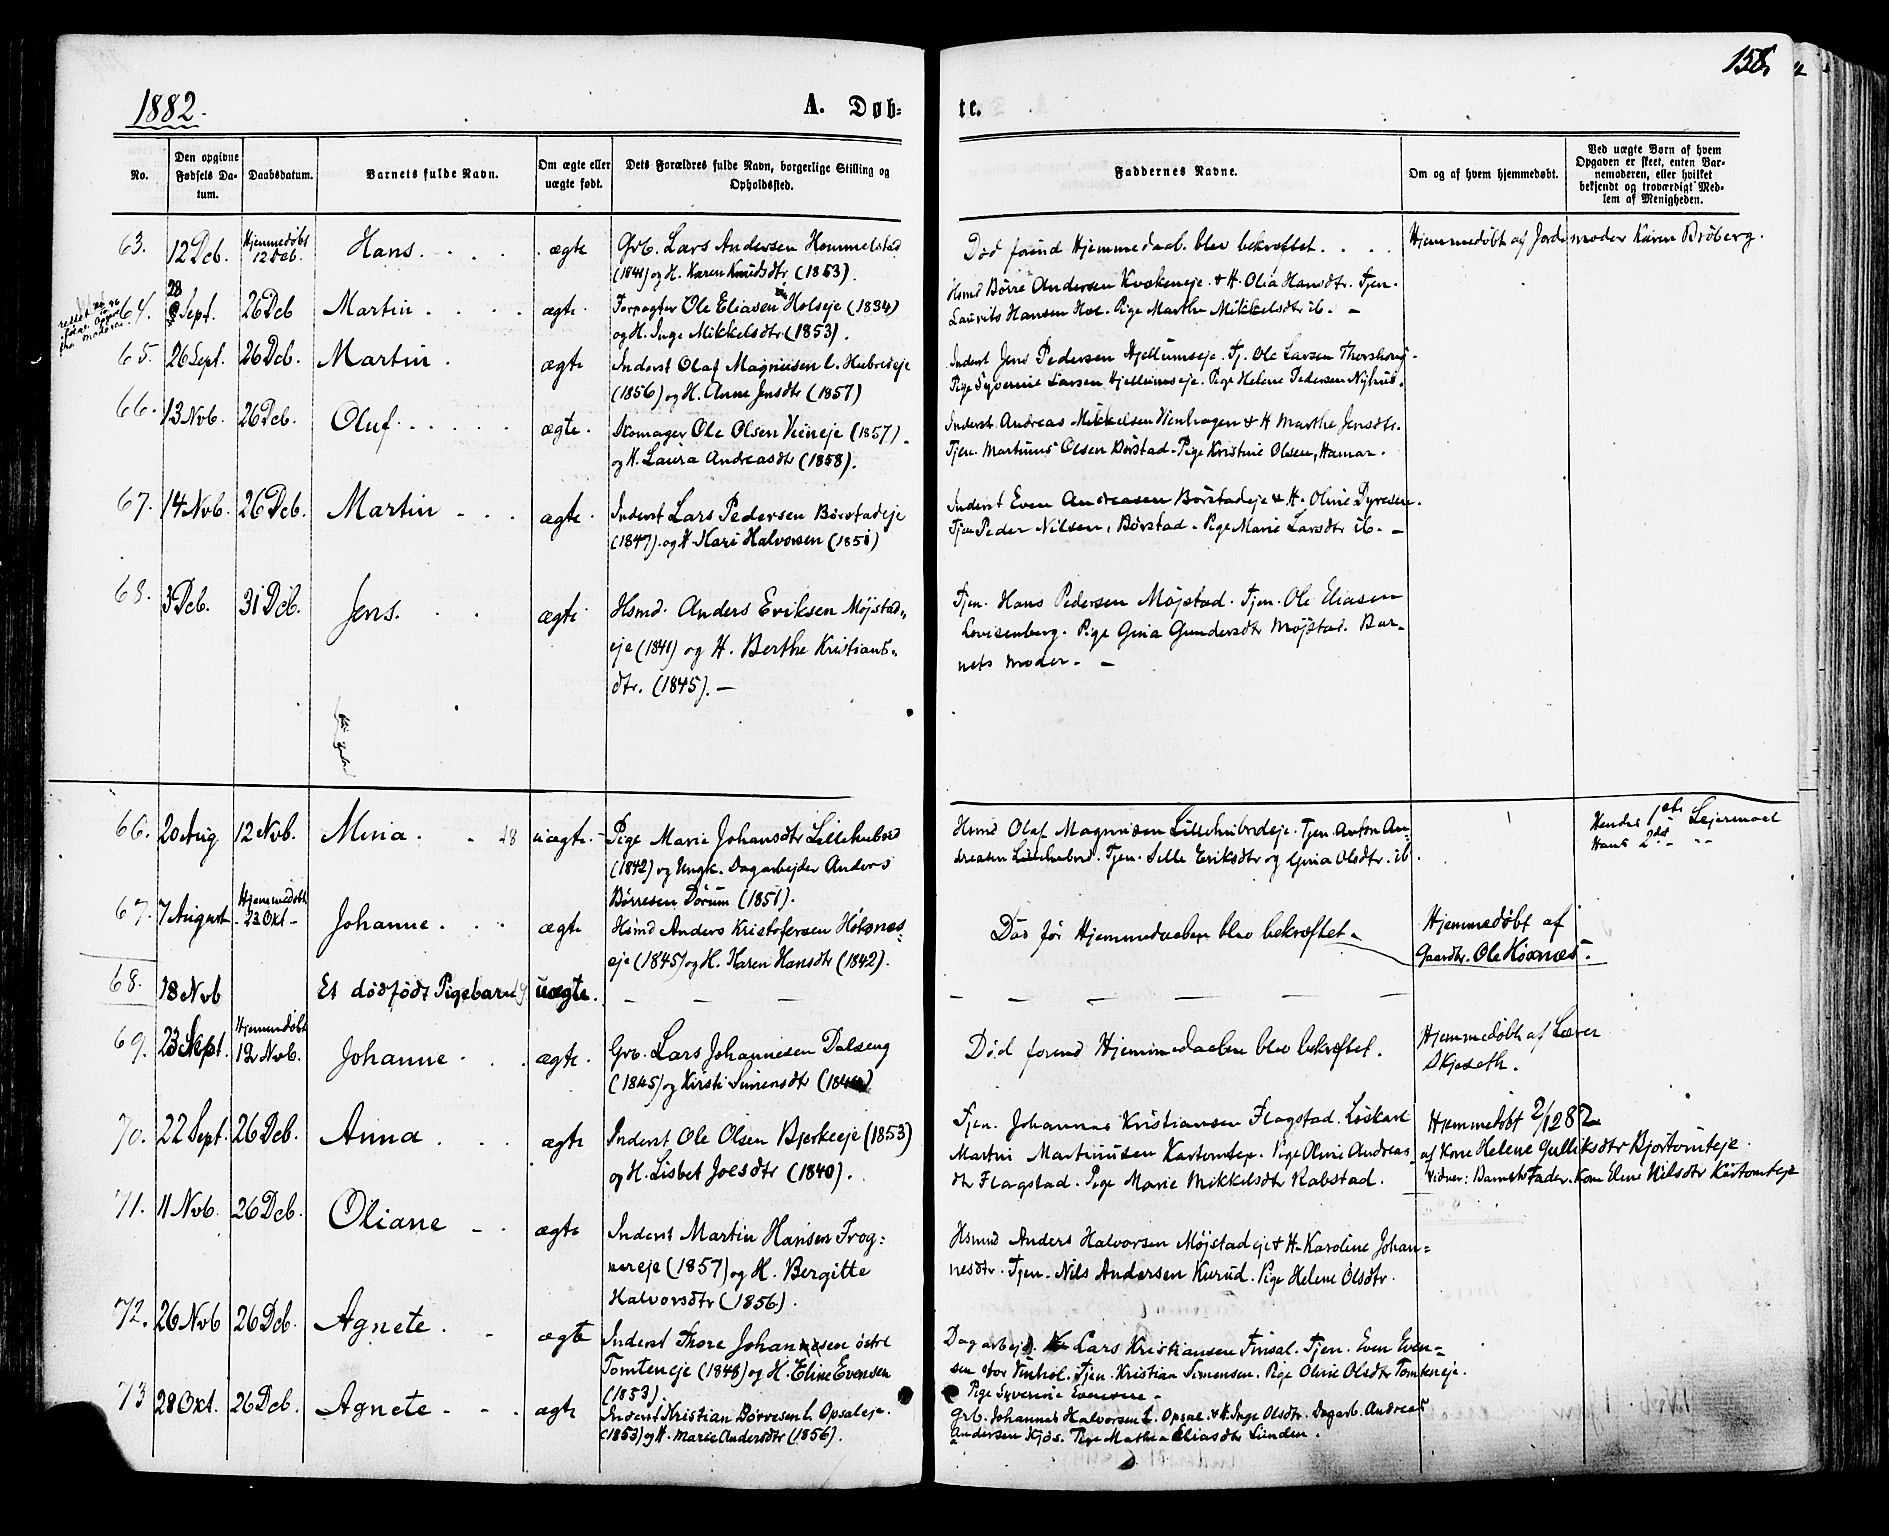 158.
1882.
A. Døb=
te.
No.
Den opgivne Fødsels Datum.
Daabsdatum.
Barnets fulde Navn.
Om ægte eller uægte født.
Dets Forældres fulde Navn, borgerlige Stilling og Opholdssted.
Faddernes Navne.
Om og af hvem hjemmedøbt.
Ved uægte Børn af hvem Opgaven er skeet, enten Barnemoderen, eller hvilket bekjendt og troværdigt Medlem af Menigheden.
63. 12 Dcb. Hjemmedøbt 12 Dcb. Hans. ægte Grb. Lars Andersen Hommelstad
(1841) og H. Karen Knudsdtr (1853).
Død forend Hjemmedaab. blev bekræftet.
Hjemmedøbt af Jordemoder Karen Broberg.
64. 28 Sept. 26 Dcb Martin ægte Forpagter Ole Eliasen Holseje (1834)
og H. Inge Mikkelsdtr (1853).
Hsmd Børre Andersen Kvækeneje. & H. Olia Hansdtr. Tjen.
Laurits Hansen Hol. Pige Marthe Mikkelsdtr ib. -
65. 26 Sept. 26 Dcb. Martin. ægte Inderst Olaf Magnusen l. Hubredeje
(1856) og H. Anne Jensdtr (1857)
Inderst Jens Pedersen Hjellumseje. Tj. Ole Larsen Thorshoug.
Pige Syverine Larsen Hjellumseje. Pige Helene Pedersen Nyhus.
66. 13 Nvb. 26 Dcb. Oluf. ægte. Skomager Ole Olsen Veineje (1857).
og H. Laura Andreasdtr (1858).
Inderst Andreas Mikkelsen Vienhagen & H Marthe Jensdtr.
Tjen. Martinus Olsen Børstad. Pige Kristine Olsen, Hamar.
67. 14 Nvb. 26 Dcb. Martin ægte. Inderst Lars Pedersen Børstadeje
(1847). og H. Kari Halvorsen (1851)
Inderst Even Andreasen Børstadeje & H. Oline Dyresen.
Tjen Peder Nilsen, Børstad. Pige Marie Larsdtr ib. -
68. 3 Dcb. 31 Dcb. Jens. ægte Hsmd. Anders Eriksen Møjstad=
eje (1841) og H. Berthe Kristians=
dtr. (1845). -
Tjen. Hans Pedersen Møjstad. Tjen. Ole Eliasen
Lovisenberg. Pige Gina Gundersdtr Møjstad. Bar-
nets Moder. -
66. 20 Aug 12 Nvb. Mina. 48 uægte. Pige Marie Johansdtr Lillehubred
(1842) og Ungk. Dagarbejder Anders
Børresen Dørum (1851).
Hsmd Olaf Magnusen Lillehubredeje. Tjen. Anton An-
dreasen Lillehubred. Tjen. Sille Eriksdtr og Gina Olsdtr. ib.
Hendes 1ste Lejermaal
Hans 2det - "-
67. 7 August Hjemmedøbt - 23 Okt - Johanne. ægte Hsmd Anders Kristofersen Hølsnes=
eje (1845) og H. Karen Hansdtr (1842).
Død før Hjemmedaaben blev bekræftet.
Hjemmedøbt af
Gaardbr. Ole Koxnæs.
68. 18 Nvb Et dødfødt Pigebarn uægte.
69. 23 Sept. Hjemmedøbt 12 Nvb. Johanne ægte. Grb. Lars Johannesen Dalseng
(1845) og Kirsti Simensdtr
Død forend Hjemmedaaben blev bekræftet.
Hjemmedøbt af Lærer
Skjeseth.
70. 22 Sept. 26 Dcb. Anna. ægte Inderst Ole Olsen Bjerkeeje (1853)
og H. Lisbet Joesdtr (1840).
Tjen. Johannes Kristiansen Flagstad. Løskarl
Martin Martinusen Kartomteje. Pige Oline Andreas-
dtr Flagstad. Pige Marie Mikkelsdtr Rabstad.
Hjemmedøbt 2/12 82
af Kone Helene Gulliksdtr Bjortomteje.
Vidner: Barnets Fader. Kone Eline Nilsdtr Kartomteje
71. 11 Nvb. 26 Dcb. Oliane ægte Inderst Martin Hansen Frog=
nereje (1857) og H. Bergitte
Halvorsdtr (1856).
Hsmd Anders Halvorsen Møjstadeje & H. Karoline Johan=
nesdtr. Tjen. Nils Andersen Kurud. Pige Helene Olsdtr.
72. 26 Nvb 26 Dcb. Agnete. ægte Inderst Thore Johannesen østre
Tomteneje (1848) og H. Eline Evensen
(1853).
Dagarbejd. Lars Kristiansen Finsal. Tjen. Even Even=
sen Vinhol. Tjen. Kristian Simensen. Pige Oline Olsdtr Tomteneje.
Pige Syverine Evensen -
73 28 Okt. 26 Dcb. Agnete. ægte Inderst Kristian Børresen l. Opsaleje.
(1853) og H. Marie Andersdtr (1856).
Grb. Johannes Halvorsen l. Opsal. & H. Inge Olsdtr. Dagarb. Andreas
Andersen Kjøs. Pige Mathea Eliasdtr Lunden.